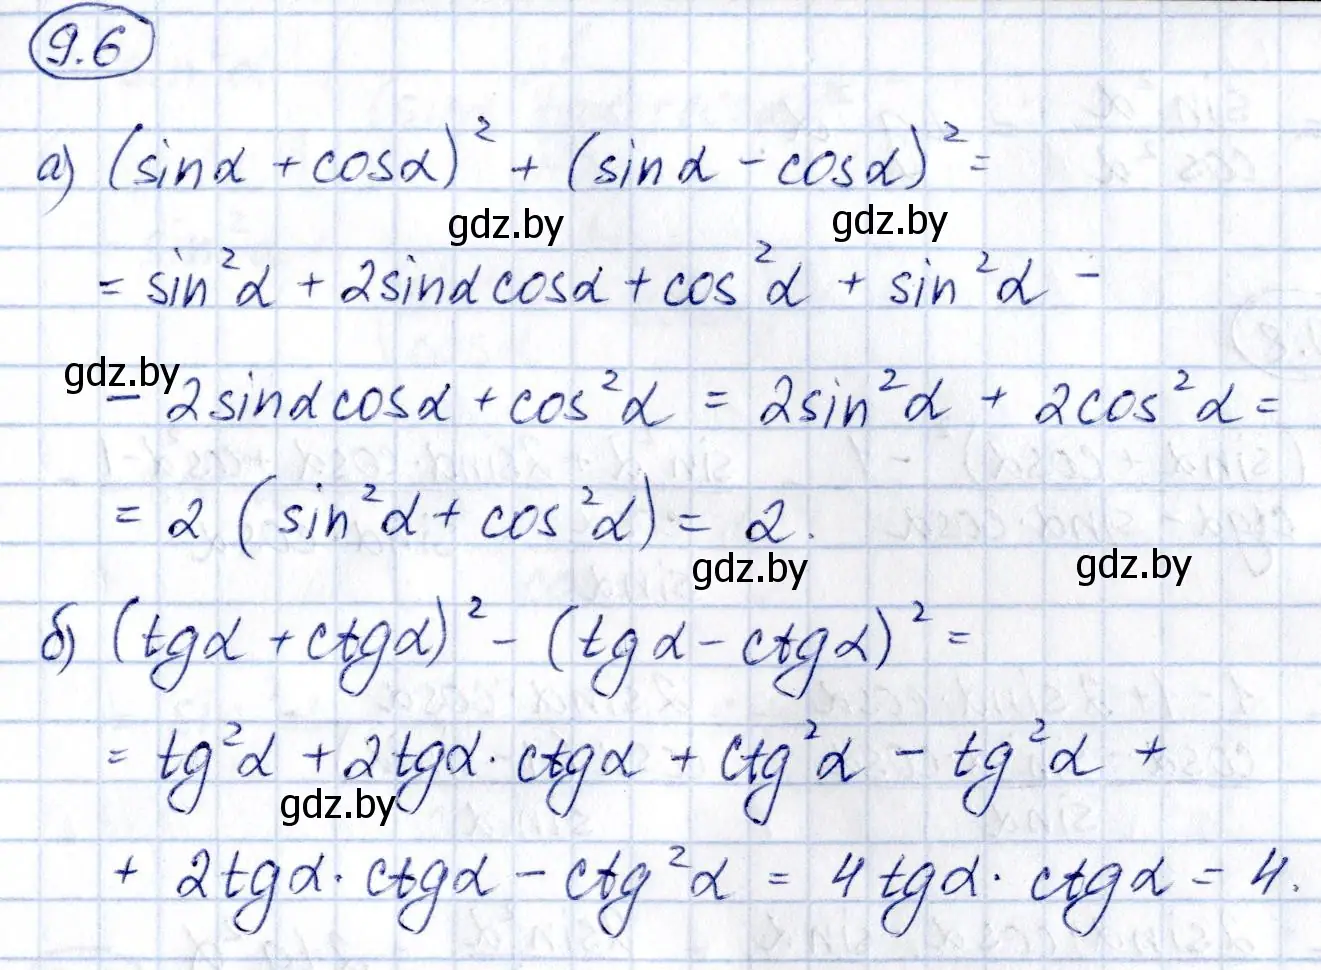 9.6
а) (sinα + cosα)² + (sinα - cosα)² =
gdz.by gdz.by
= sin²α + 2sinα cosα + cos²α + sin²α -
gdz.by
- 2sinα cosα + cos²α = 2sin²α + 2cos²α =
= 2 (sin²α + cos²α) = 2.
gdz.by gdz.by
б) (tgα + ctgα)² - (tgα - ctgα)² =
= tg²α + 2tgα · ctgα + ctg²α - tg²α +
gdz.by
+ 2tgα · ctgα - ctg²α = 4tgα · ctgα = 4.